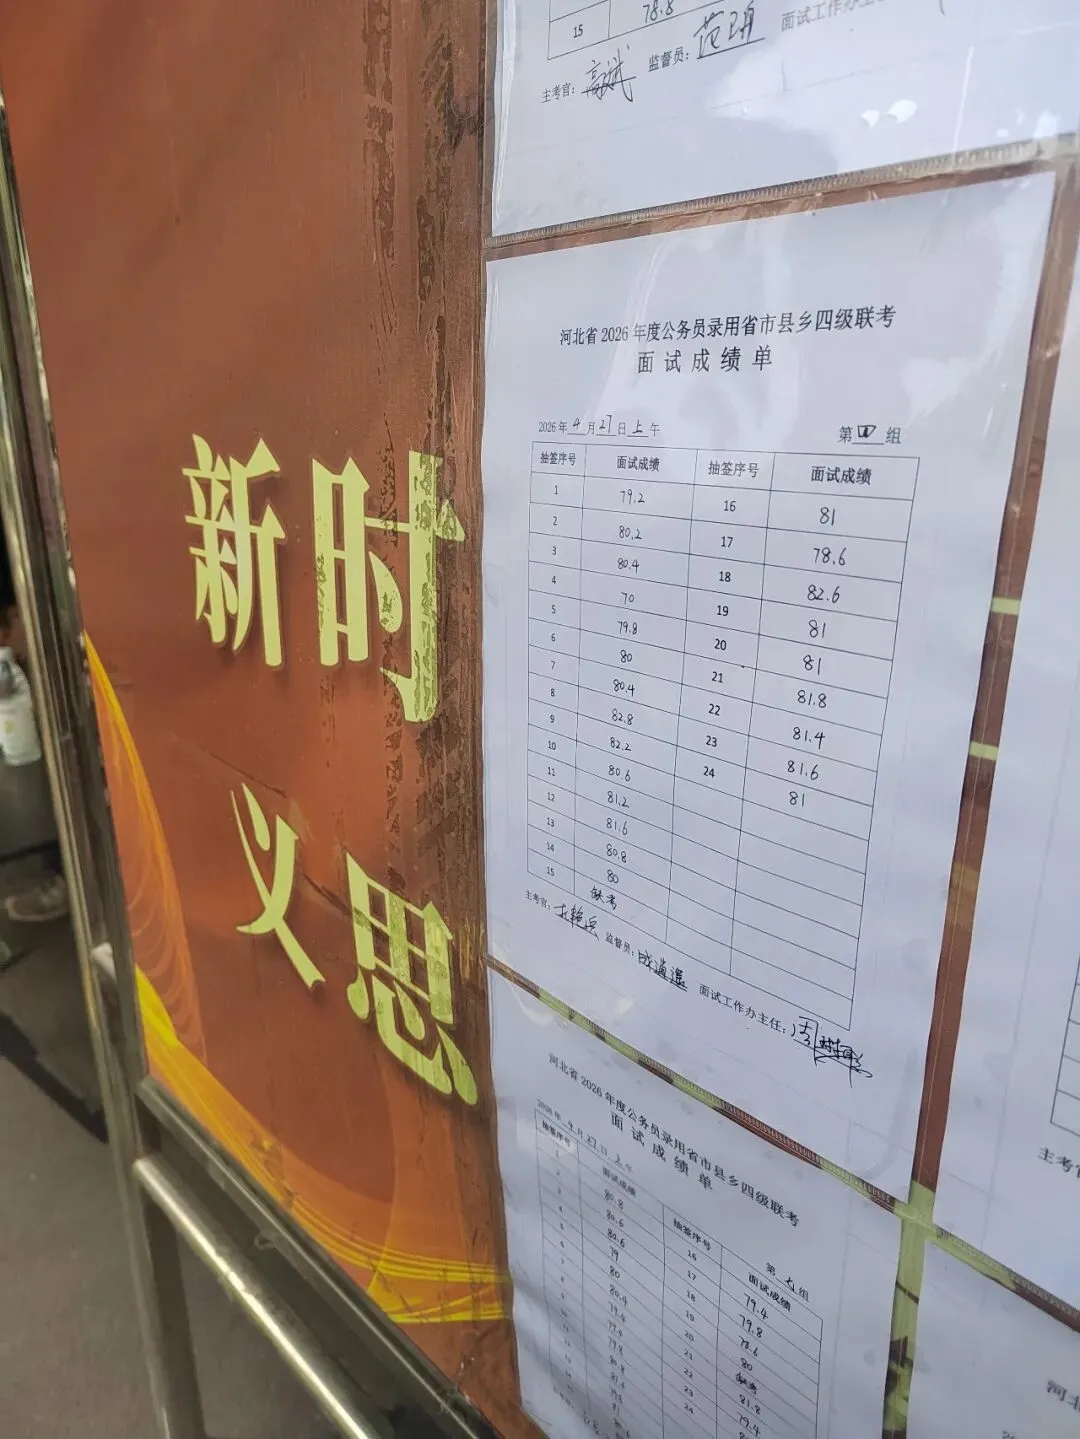 15 78.8
主考官: 高斌 监督员: 范玥 面试工作办主
新时
义思
河北省 2026 年度公务员录用省市县乡四级联考
面试成绩单
2026 年 4 月 27 日 上 午 第 四 组
抽签序号 面试成绩 抽签序号 面试成绩
1 79.2 16 81
2 80.2 17 78.6
3 80.4 18 82.6
4 70 19 81
5 79.8 20 81
6 80 21 81.8
7 80.4 22 81.4
8 82.8 23 81.6
9 82.2 24 81
10 80.6
11 81.2
12 81.6
13 80.8
14 80
15 缺考
主考官: 监督员: 成逍遥 面试工作办主任:
河北省 2026 年度公务员录用省市县乡四级联考
面试成绩单
2026 年 4 月 27 日 上 午 第 七 组
抽签序号 面试成绩 抽签序号 面试成绩
1 80.8 16 79.4
2 80.6 17 79.8
3 80.6 18 78.6
4 79 19 80
5 80 20 缺考
6 80.4 21 81.8
7 22 79.4
23
24
主考官
河